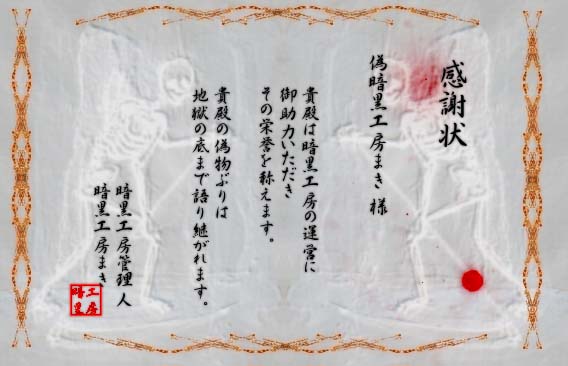 感謝状
偽暗黒工房まき 様
貴殿は暗黒工房の運営に
御助力いただき
その栄誉を称えます。
貴殿の偽物ぶりは
地獄の底まで語り継がれます。
暗黒工房管理人
暗黒工房まき
工房
暗黒